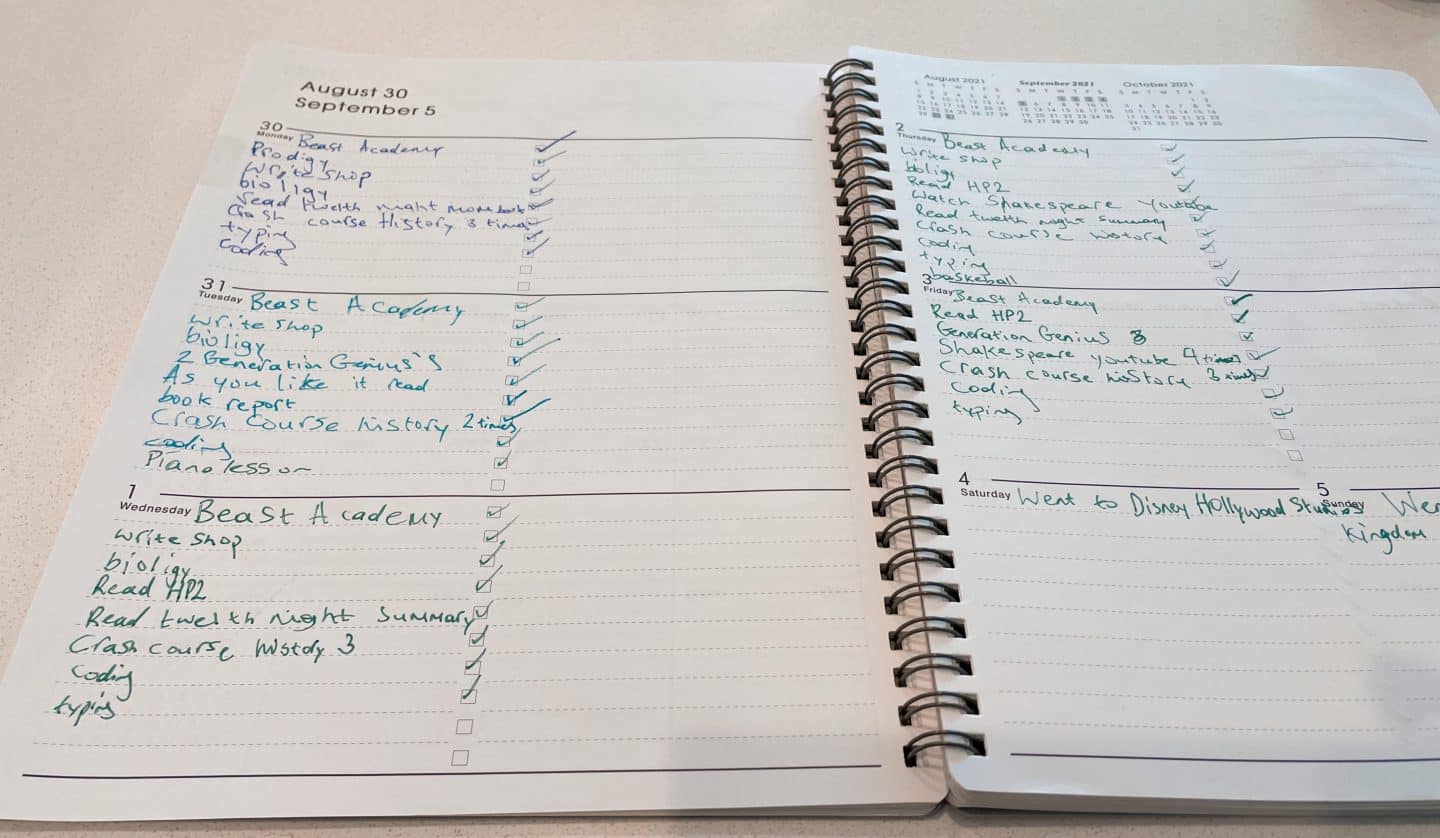 August 30
September 5
30
Monday
Beast Academy
Prodigy
Write shop
biollgy
read twelth night more book
Crash course History 3 times
typing
Coding
31
Tuesday
Beast Academy
Write shop
bioligy
2 Generation Genius's
As you like it read
book report
Crash course history 2 times
coding
Piano lesson
1
Wednesday
Beast Academy
write shop
bioligy
Read HP2
Read twelth night summary
Crash course history 3
coding
typing
August 2021
September 2021
October 2021
2
Thursday
Beast Academy
Write shop
bioligy
Read HP2
Watch Shakespeare Youtube
Read twelth night summary
Crash course history
coding
typing
basketball
3
Friday
Beast Academy
Read HP2
Generation Genius 3
Shakespeare youtube 4 times
Crash course history 3 times
coding
typing
4
Saturday
Went to Disney Hollywood Studios
5
Sunday
Kingdom